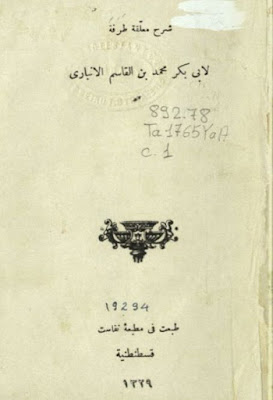 شرح معلقة طرفة
لابى بكر محمد بن القاسم الانبارى
892.78
Ta1765YaA
c.1
19294
طبعت فى مطبعة نفاست
قسطنطنية
١٣٢٩